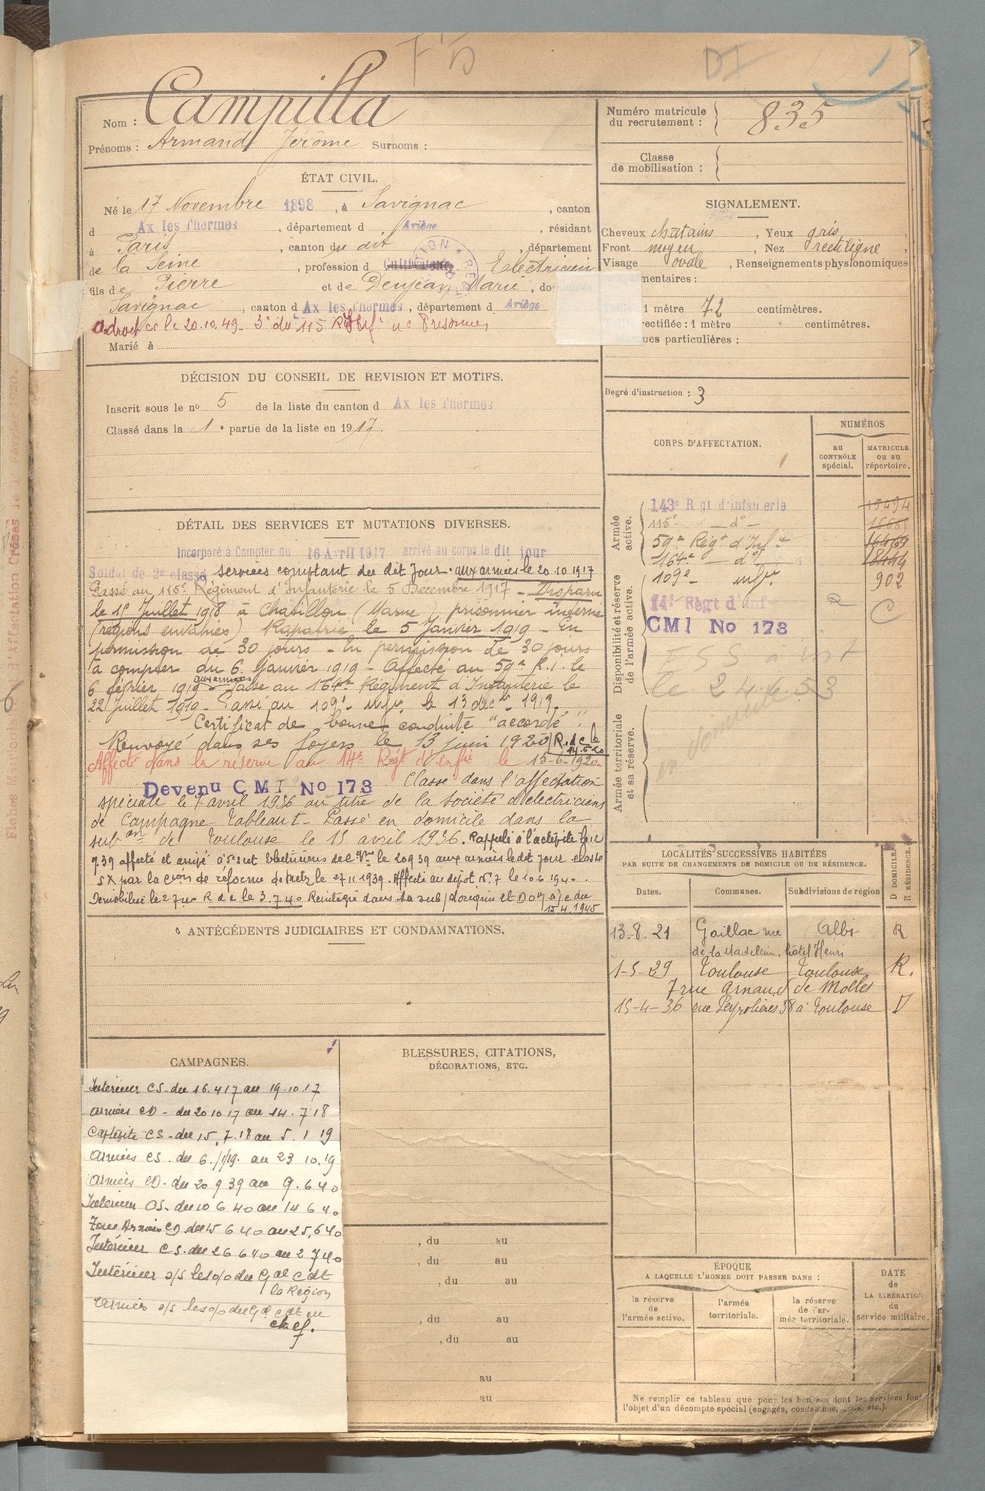 Nom : Campilla
Prénoms : Armand Jérôme Surnoms :
ÉTAT CIVIL.
Né le 17 Novembre 1898, à Savignac, canton
d Ax les Thermes, département d Ariège, résidant
à Paris, canton du dit, département
de la Seine, profession d Cultivateur Electricien
fils de Pierre et de Denjean Marie, do
Savignac, canton d Ax les Thermes, département d Ariège
le 20.10.49
Marié à
DÉCISION DU CONSEIL DE REVISION ET MOTIFS.
Inscrit sous le no 5 de la liste du canton d Ax les Thermes
Classé dans la 1e partie de la liste en 1917.
DÉTAIL DES SERVICES ET MUTATIONS DIVERSES.
Incorporé à Compter du 16 Avril 1917 arrivé au corps le dit jour
Soldat de 2e classe services comptant du dit jour. aux armées le 20.10.1917
Passé au 115e Régiment d'Infanterie le 5 Décembre 1917 - Disparu
le 15 Juillet 1918 à Chatillon (Marne) prisonnier interné
(régions envahies) Rapatrié le 5 Janvier 1919 - En
permission de 30 jours - En permission de 30 jours
à compter du 6 Janvier 1919 - Affecté au 59e R.I. le
6 février 1919 aux armées Passé au 164e Régiment d'Infanterie le
22 juillet 1919 - Passé au 109e Infie le 13 déc 1919.
Certificat de bonne conduite "accordé".
Renvoyé dans ses foyers le 13 juin 1920 R. d. c. le 14.6.20
Affecté dans la réserve au 14e Régt d'Infie le 15-6-1920
Devenu CMI No 173 Classé dans l'affectation
spéciale le 1 avril 1936 au titre de la Société d'électriciens
de Campagne Tableau - Passé en domicile dans la
subon de Toulouse le 15 avril 1936. Rappelé à l'activité le 12
9 39 affecté et arrivé le 20 9 39 aux armées le dit jour classé
SX par la Cion de réforme de Metz le 27.11.1939. Affecté au dépôt le 10.6.1940
Démobilisé le 2 7 40 R d c le 3.7.40 Réintégré dans sa sub/ d'origine
15.4.1945
ANTÉCÉDENTS JUDICIAIRES ET CONDAMNATIONS.
CAMPAGNES.
Intérieur CS. du 16.4 17 au 19.10.17
Armées CD - du 20 10 17 au 14.7 18
Captivité CS - du 15.7.18 au 5.1 19
Armées CS. du 6.1.19. au 23 10.19
Armées CD. du 20 9 39 au 9.6 40
Intérieur CS. du 10 6 40 au 14 6 40
Zone Armées CD du 15 6 40 au 25.6 40
Intérieur CS. du 26 6 40 au 2 7 40
Intérieur s/s les o/o du Gal Cdt
la Région
Armées s/s les o/o du Gal Cdt en
chef.
BLESSURES, CITATIONS,
DÉCORATIONS, ETC.
, du au
, du au
, du au
, du au
, du au
au
au
Numéro matricule
du recrutement : 835
Classe
de mobilisation :
SIGNALEMENT.
Cheveux chatains, Yeux gris,
Front moyen, Nez rectiligne,
Visage ovale, Renseignements physionomiques
mentaires :
1 mètre 72 centimètres.
rectifiée : 1 mètre centimètres.
ues particulières :
Degré d'instruction : 3
CORPS D'AFFECTATION.
NUMÉROS
au
contrôle
spécial.
matricule
ou au
répertoire.
Armée
active.
143e Régt d'infanterie
115e - do -
59e Régt d'Infie
164e do
109e Infie 902
Disponibilité et réserve
de l'armée active.
14e Régt d'Infie
CMI No 173
C
le 24.6.53
en domicile
Armée territoriale
et sa réserve.
LOCALITÉS SUCCESSIVES HABITÉES
PAR SUITE DE CHANGEMENTS DE DOMICILE OU DE RÉSIDENCE.
Dates. Communes. Subdivisions de région
D DOMICILE.
R RÉSIDENCE.
13.8.21 Gaillac rue Albi R
de la Madeleine, hôtel Henri
1-5-29 Toulouse Toulouse R.
7 rue Arnaud de Moles
15-4-36 rue Peyrolières 38 à Toulouse D
ÉPOQUE
A LAQUELLE L'HOMME DOIT PASSER DANS :
la réserve
de
l'armée active.
l'armée
territoriale.
la réserve
de l'ar-
mée territoriale.
DATE
de
LA LIBÉRATION
du
service militaire.
Ne remplir ce tableau que pour les hommes dont les services font
l'objet d'un décompte spécial (engagés, condamnés, omis, etc.).